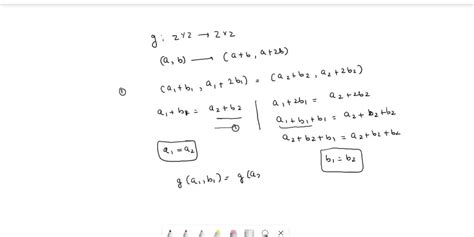 g: Z×Z → Z×Z
(a,b) → (a+b, a+2b)
① (a₁+b₁, a₁+2b₁) = (a₂+b₂, a₂+2b₂)
a₁+b₁ = a₂+b₂
①
a₁=a₂
a₁+2b₁ = a₂+2b₂
a₁+b₁+b₁ = a₂+b₂+b₂
a₂+b₂+b₁ = a₂+b₂+b₂
b₁=b₂
g(a₁,b₁) = g(a₂